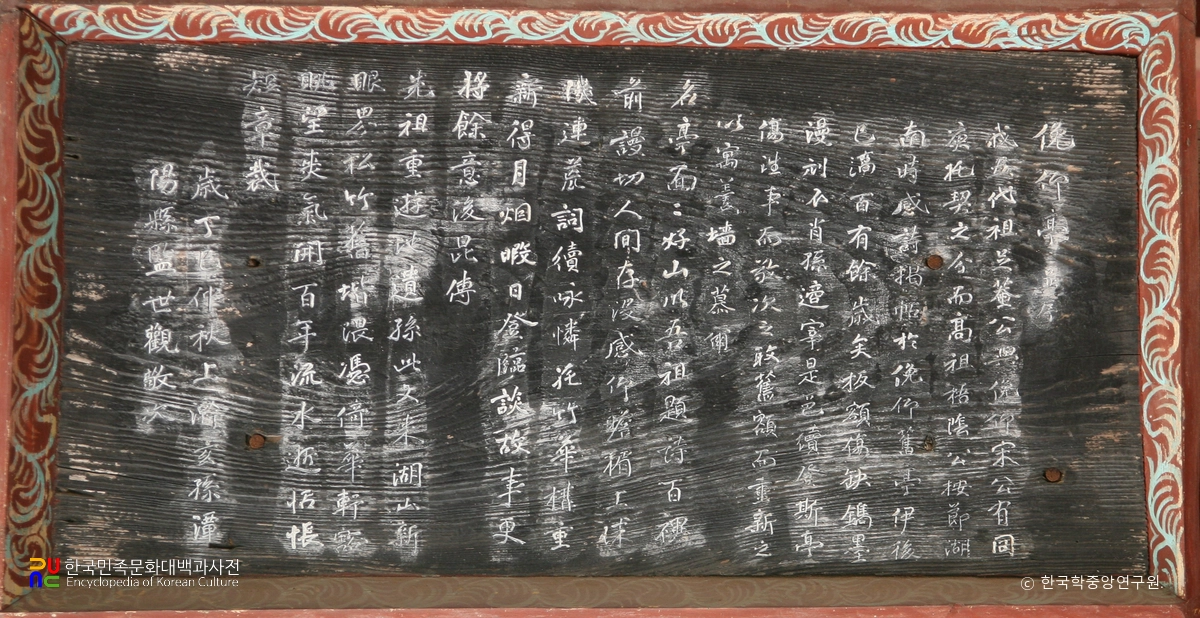 俛仰亭
我五代祖菴公與俛仰宋公有同
庚托契之分而高祖梧陰公按節湖
南時感詩揭帖於俛仰舊亭伊後
已滿百有餘歲矣板額傷缺鐫墨
漫刓不肖孫適宰是邑續登斯亭
傷事而敬次之敢舊額而重新之
以寓羹墻之慕爾
名亭面〻好山以吾祖題詩百禩
前謾切人間存沒感仰蟾楣上
璣連荒詞續咏憐花竹華構重
新得月烟暇日登臨談故事更
將餘意後昆傳
先祖重遊遺孫此又來湖山新
眼界松竹舊堦隈憑倚華軒豁
眺望爽氣開百年流水逝怊悵
短章裁
歲丁酉仲秋上澣玄孫潭
陽縣監世觀敬次
한국민족문화대백과사전
Encyclopedia of Korean Culture
© 한국학중앙연구원.